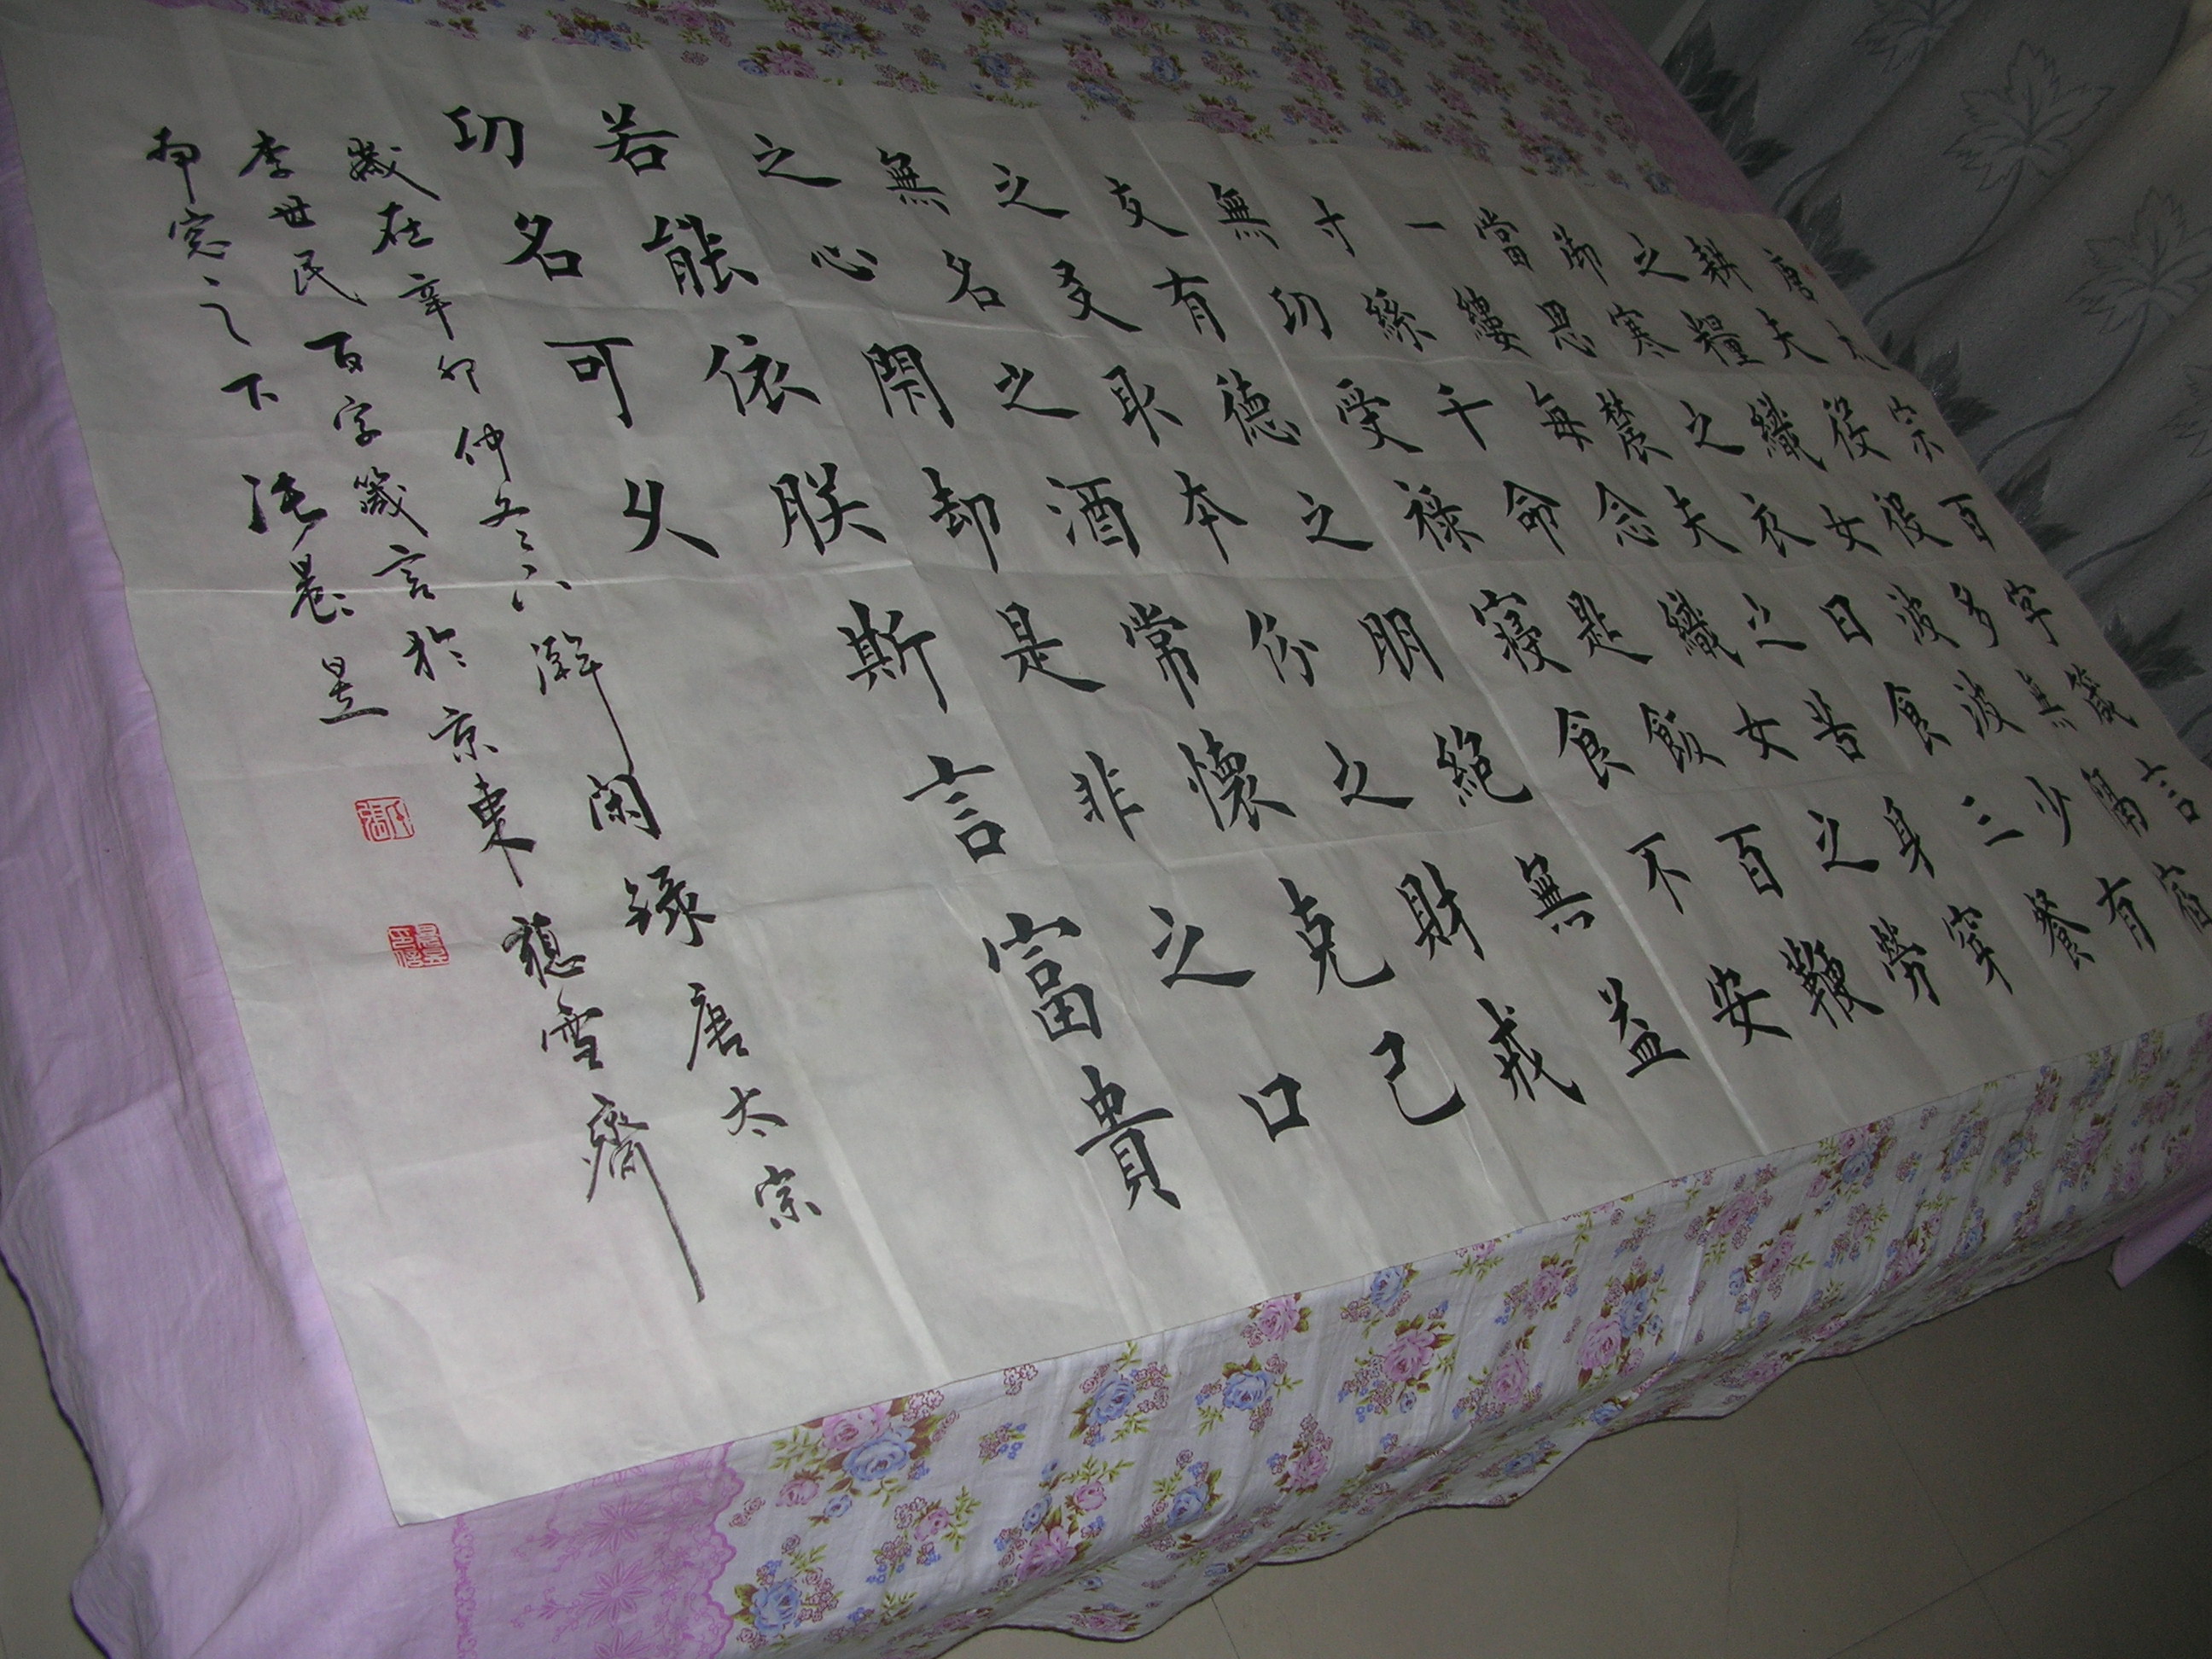 唐太宗百字箴言
耕夫役役多無隔宿
之糧織女波波少有
御寒之衣日食三餐
當思農夫之苦身穿
一縷每念織女之勞
寸絲千命匙飯百鞭
無功受祿寢食不安
交有德之朋絕無益
之友取本份之財戒
無名之酒常懷克己
之心閉却是非之口
若能依朕斯言富貴
功名可久
歲在辛卯仲冬之下澣閑録唐太宗
李世民百字箴言於京東聽雪齋
南窗之下張晨昱